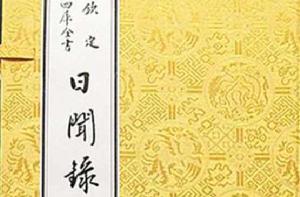 欽定
四库全書
日聞錄